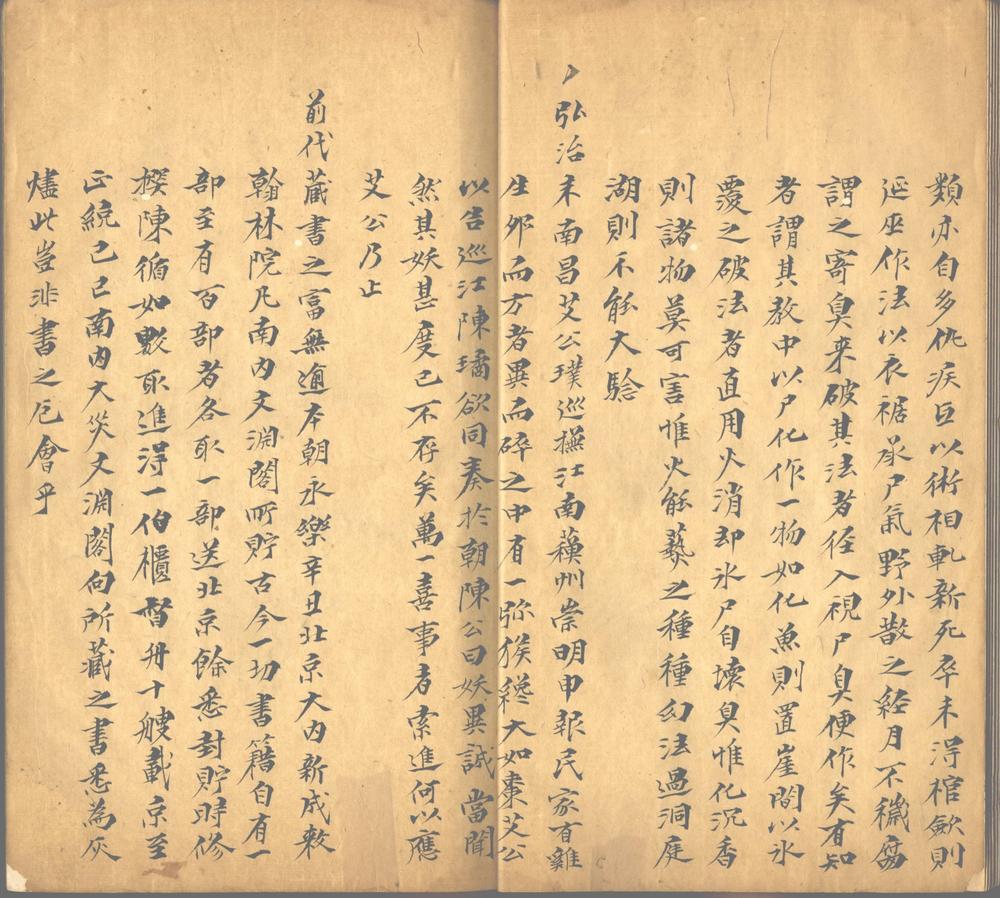 類亦自多仇疾互以術相軋新死卒未淂棺歛則
延巫作法以衣裾承尸氣野外散之経月不穢腐
謂之寄臭来破其法者径入視尸臭便作矣有知
者謂其教中以尸化作一物如化魚則置崖間以氷
覆之破法者直用火消却氷尸自壊臭惟化沉香
則諸物莫可害惟火能爇之種種幻法過洞庭
湖則不能大騐
弘治末南昌艾公璞巡撫江南蘓州崇明申報民家有雞
生卵而方者異而碎之中有一弥猴纔大如棗艾公
以告巡江陳璚欲同奏於朝陳公曰妖異誠當聞
然其妖甚度已不存矣萬一喜事者索進何以應
艾公乃止
前代藏書之富無逾本朝永樂辛丑北京大内新成敕
翰林院凡南内文淵閣所貯古今一切書籍自有一
部至有百部者各取一部送北京餘悉封貯時修
撰陳循如數取進淂一伯櫃督舟十艘載京至
正統己巳南内大災文淵閣向所藏之書悉為灰
燼此豈非書之厄會乎